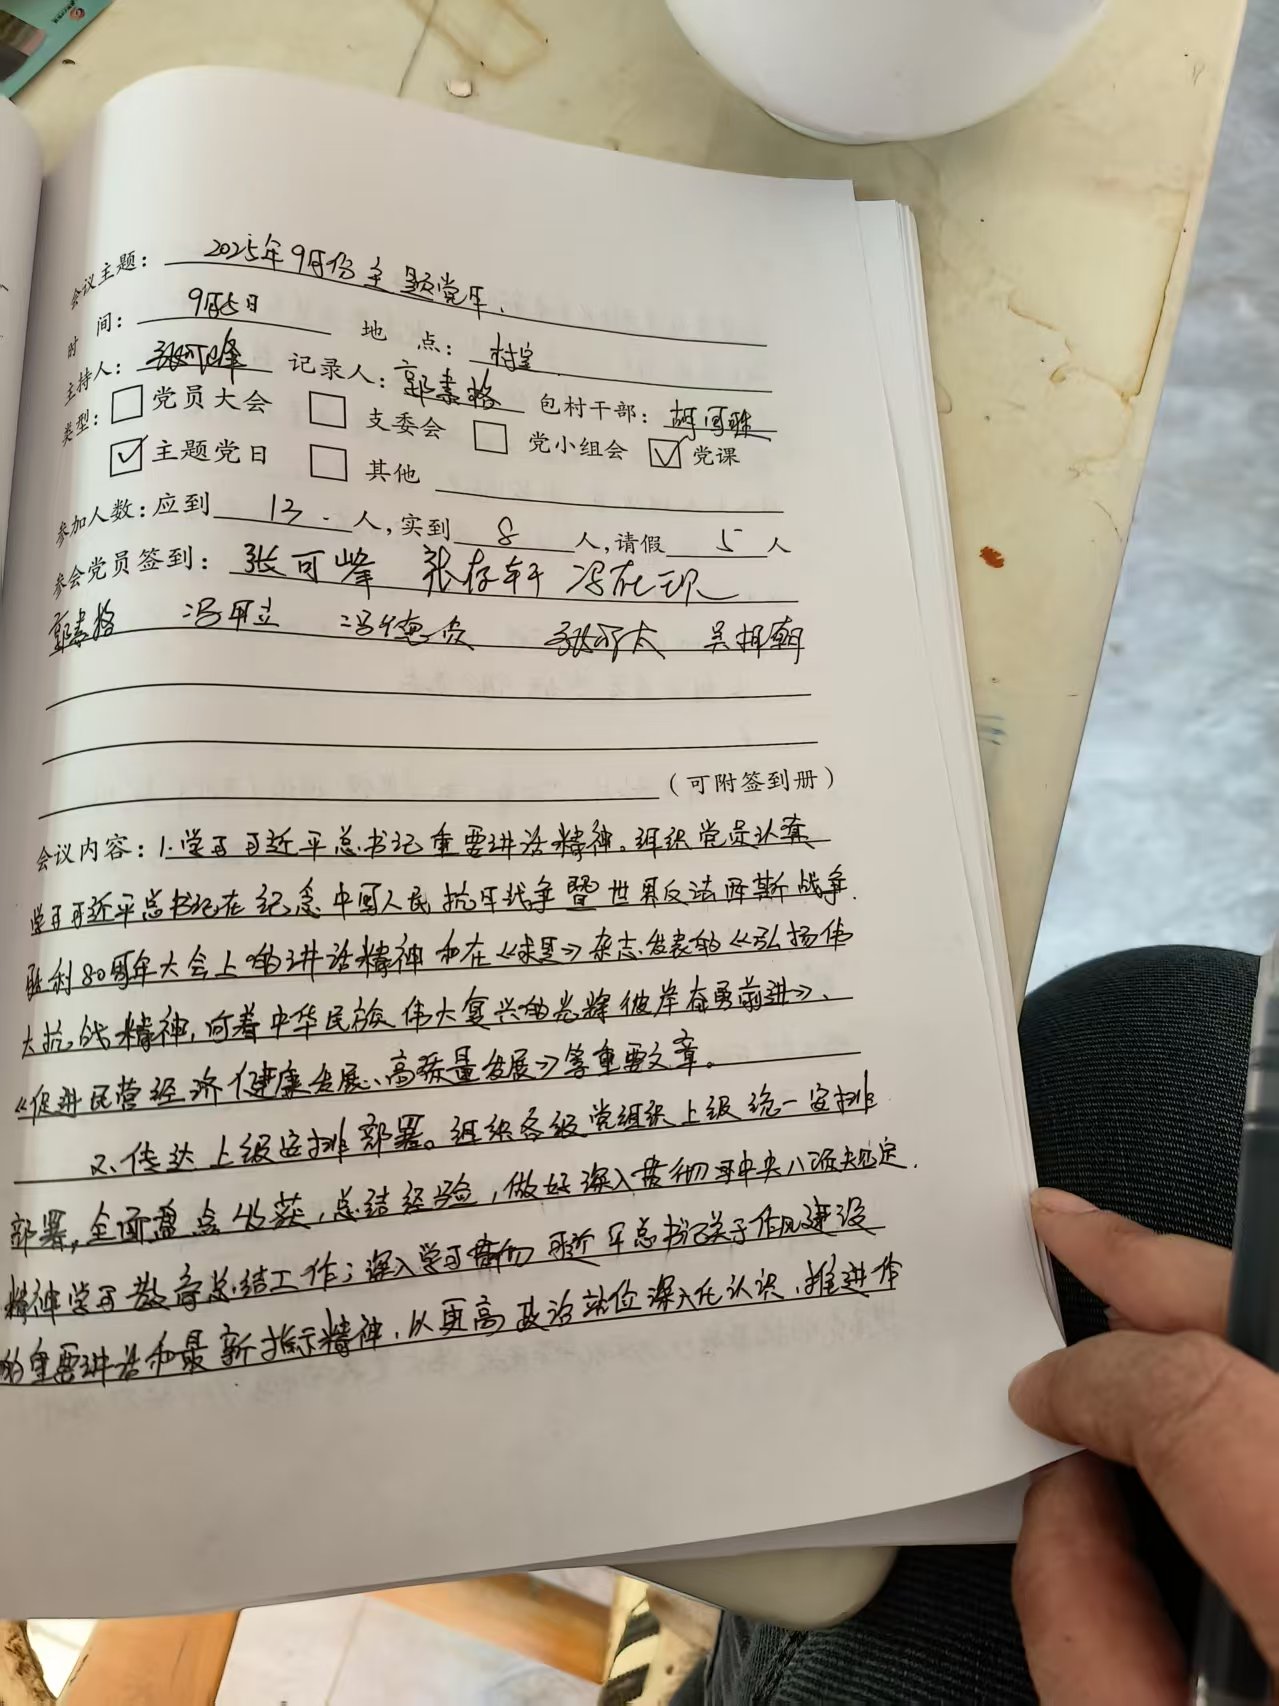 会议主题：2025年9月份主题党日.
时 间：9月5日 地 点：村室
主持人：张可峰 记录人：郭素格 包村干部：
类型：党员大会 支委会 党小组会 党课
主题党日 其他
参加人数：应到 13 人，实到 8 人，请假 5 人
参会党员签到：张可峰 张存轩
郭素格 冯甲立 冯德贞 张所太
（可附签到册）
会议内容：1.学习习近平总书记重要讲话精神。组织党员认真
学习习近平总书记在纪念中国人民抗日战争暨世界反法西斯战争
胜利80周年大会上的讲话精神和在《求是》杂志发表的《弘扬伟
大抗战精神，向着中华民族伟大复兴的光辉彼岸奋勇前进》、
《促进民营经济健康发展、高质量发展》等重要文章。
2、传达上级安排部署。组织各级党组织上级统一安排
部署，全面盘点收获，总结经验，做好深入贯彻中央八项规定
精神学习教育总结工作；深入学习贯彻习近平总书记关于作风建设
的重要讲话和最新指示精神，以更高政治站位深入化认识，推进作